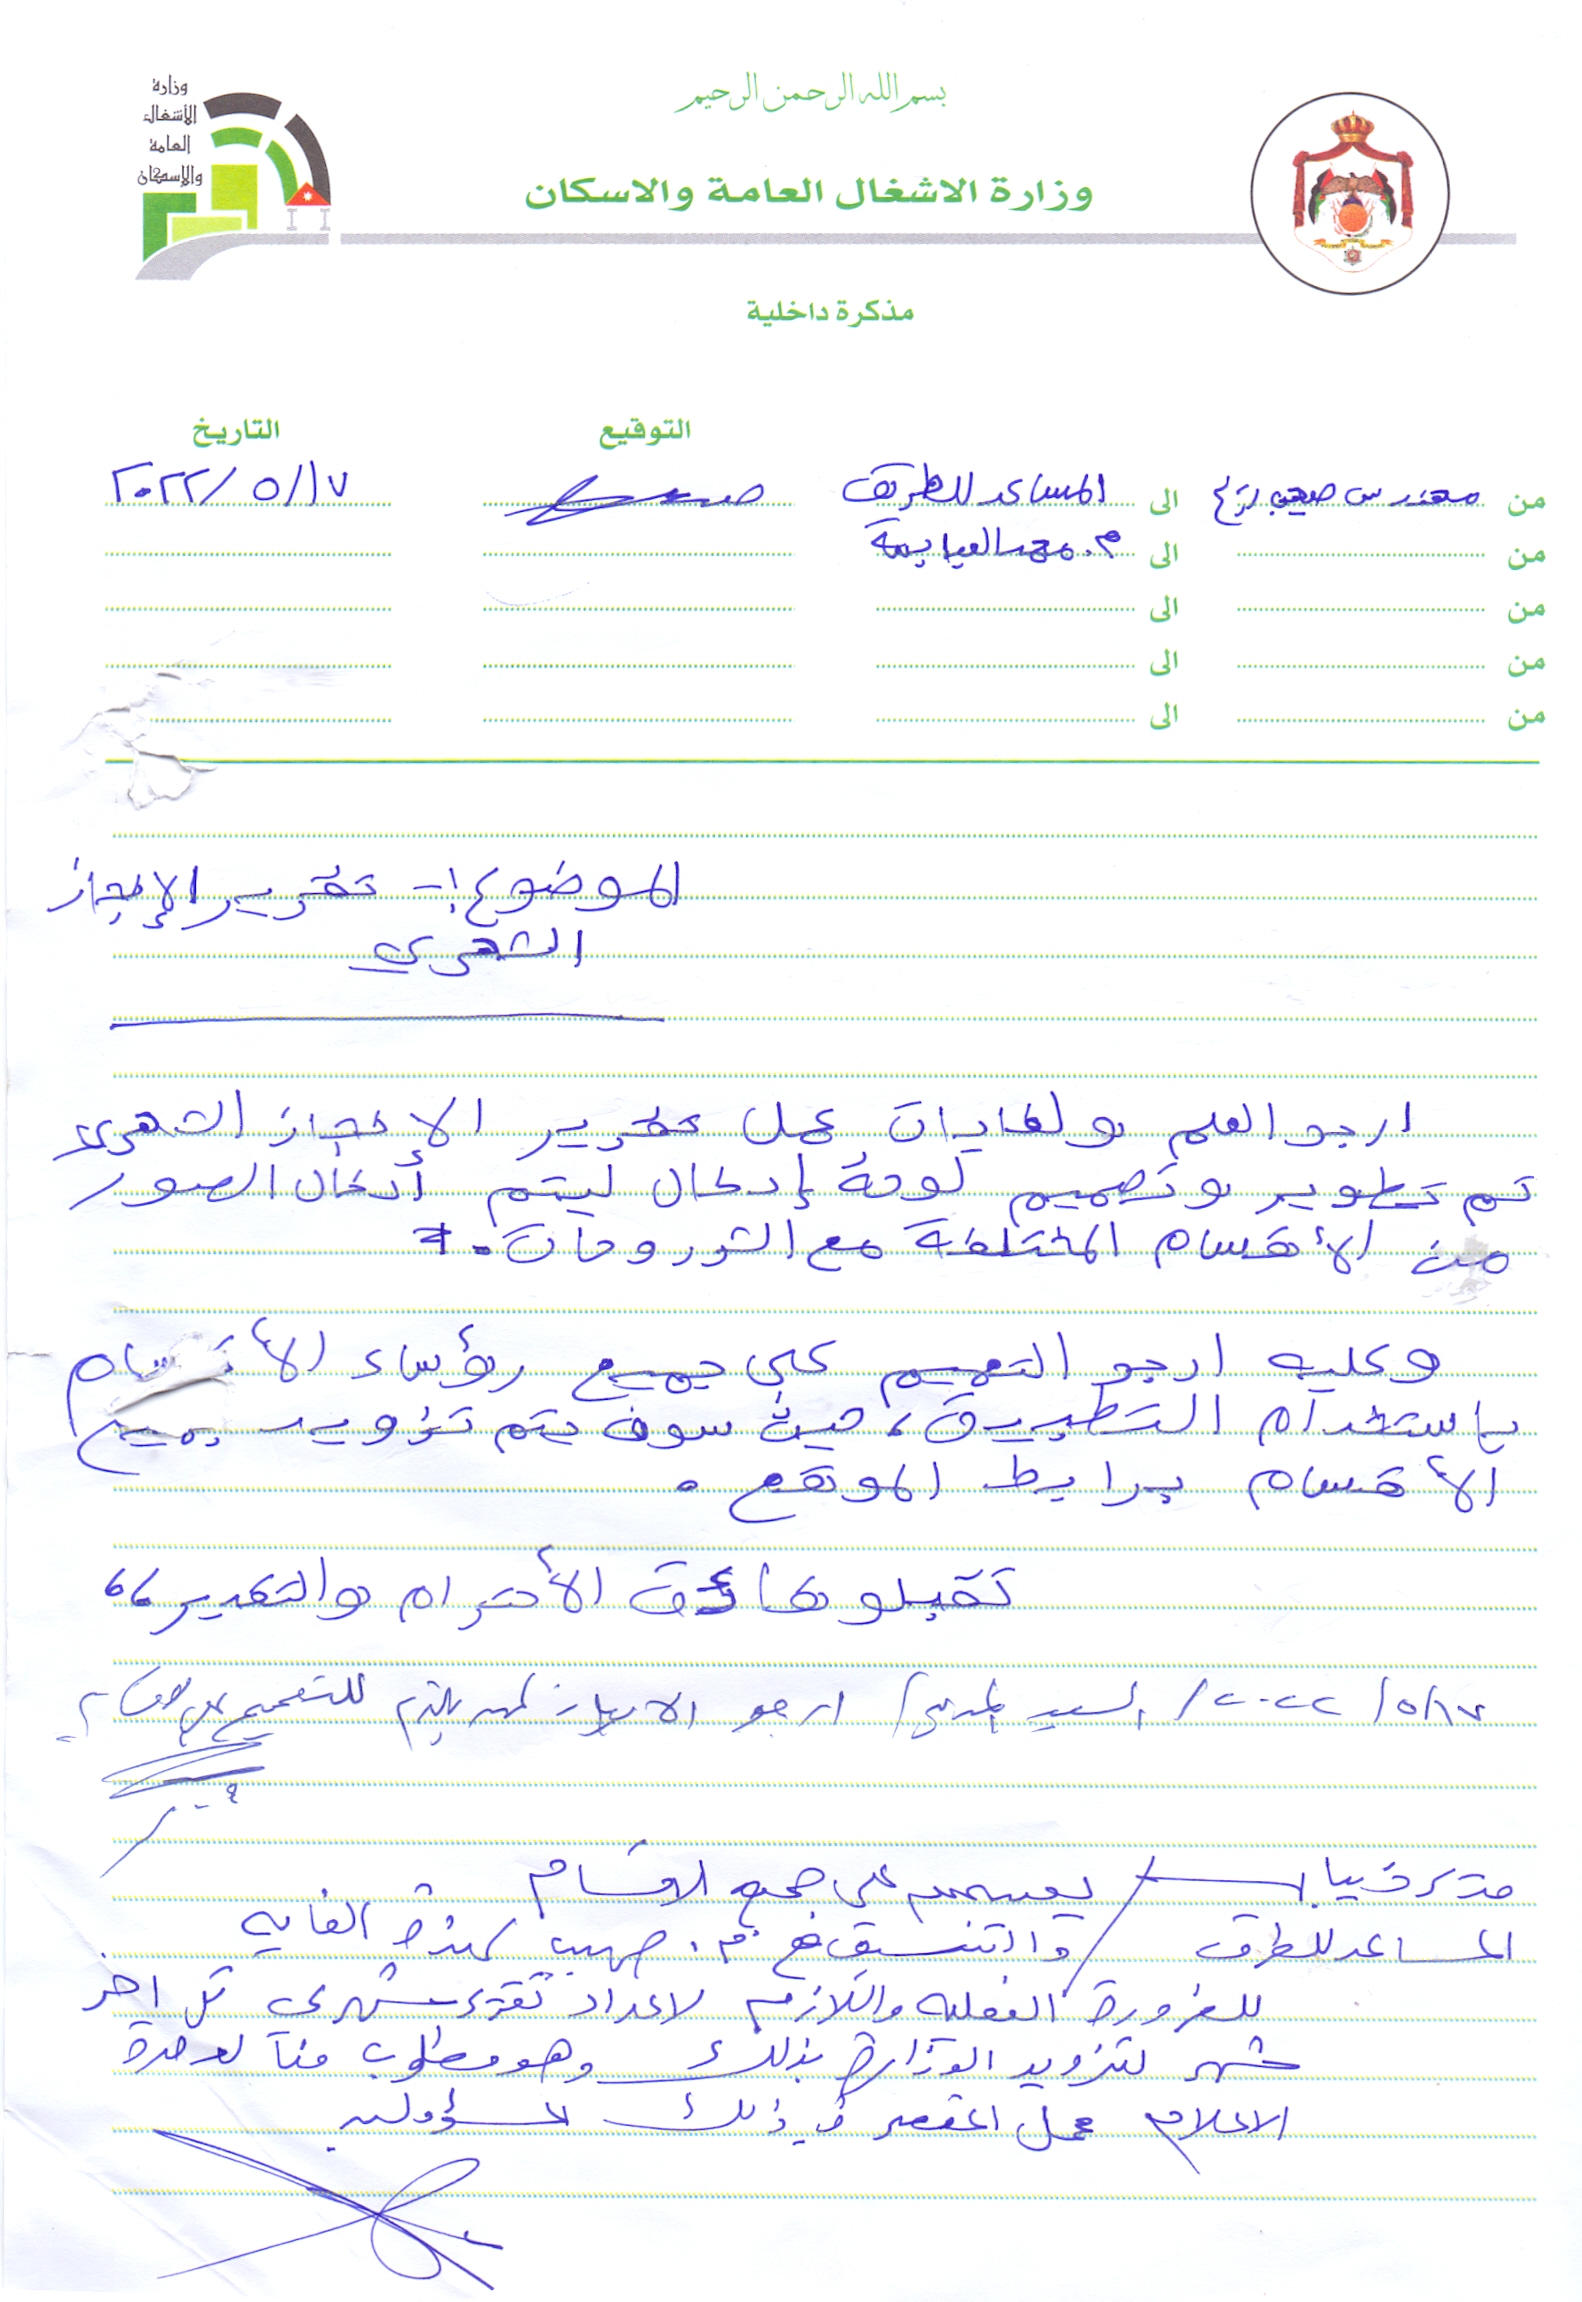 بسم الله الرحمن الرحيم
وزارة
الأشغال
العامة
والإسكان
وزارة الاشغال العامة والاسكان
مذكرة داخلية
التوقيع التاريخ
من مهندس صهيب الى المساعد للطرق ٢٠٢٢/٥/١٧
من الى م. محمد العبابسة
من الى
من الى
من الى
الموضوع :- تقرير الإنجاز
الشهري
ارجو العلم ولغايات عمل تقرير الإنجاز الشهري
تم تطوير وتصميم لوحة إدخال ليتم أدخال الصور
من الأقسام المختلفة مع الشروحات.
وعليه ارجو التعميم على جميع رؤساء الأقسام
باستخدام التطبيق، حيث سوف يتم تزويد جميع
الأقسام برابط الموقع.
تقبلوا فائق الأحترام والتقدير،،
٢٠٢٢/٥/١٧ / السيد المدير / ارجو الايعاز لمن يلزم للتعميم على الاقسام
يعمم على جميع الاقسام
المساعد للطرق / والتنسيق مع م. صهيب لهذه الغايه
للضرورة الفعليه واللازم لاعداد تقرير شهري كل اخر
شهر لتزويد الوزارة بذلك وهو مطلوب منا لوحدة
الاعلام محمل المقصر في ذلك المسؤوليه